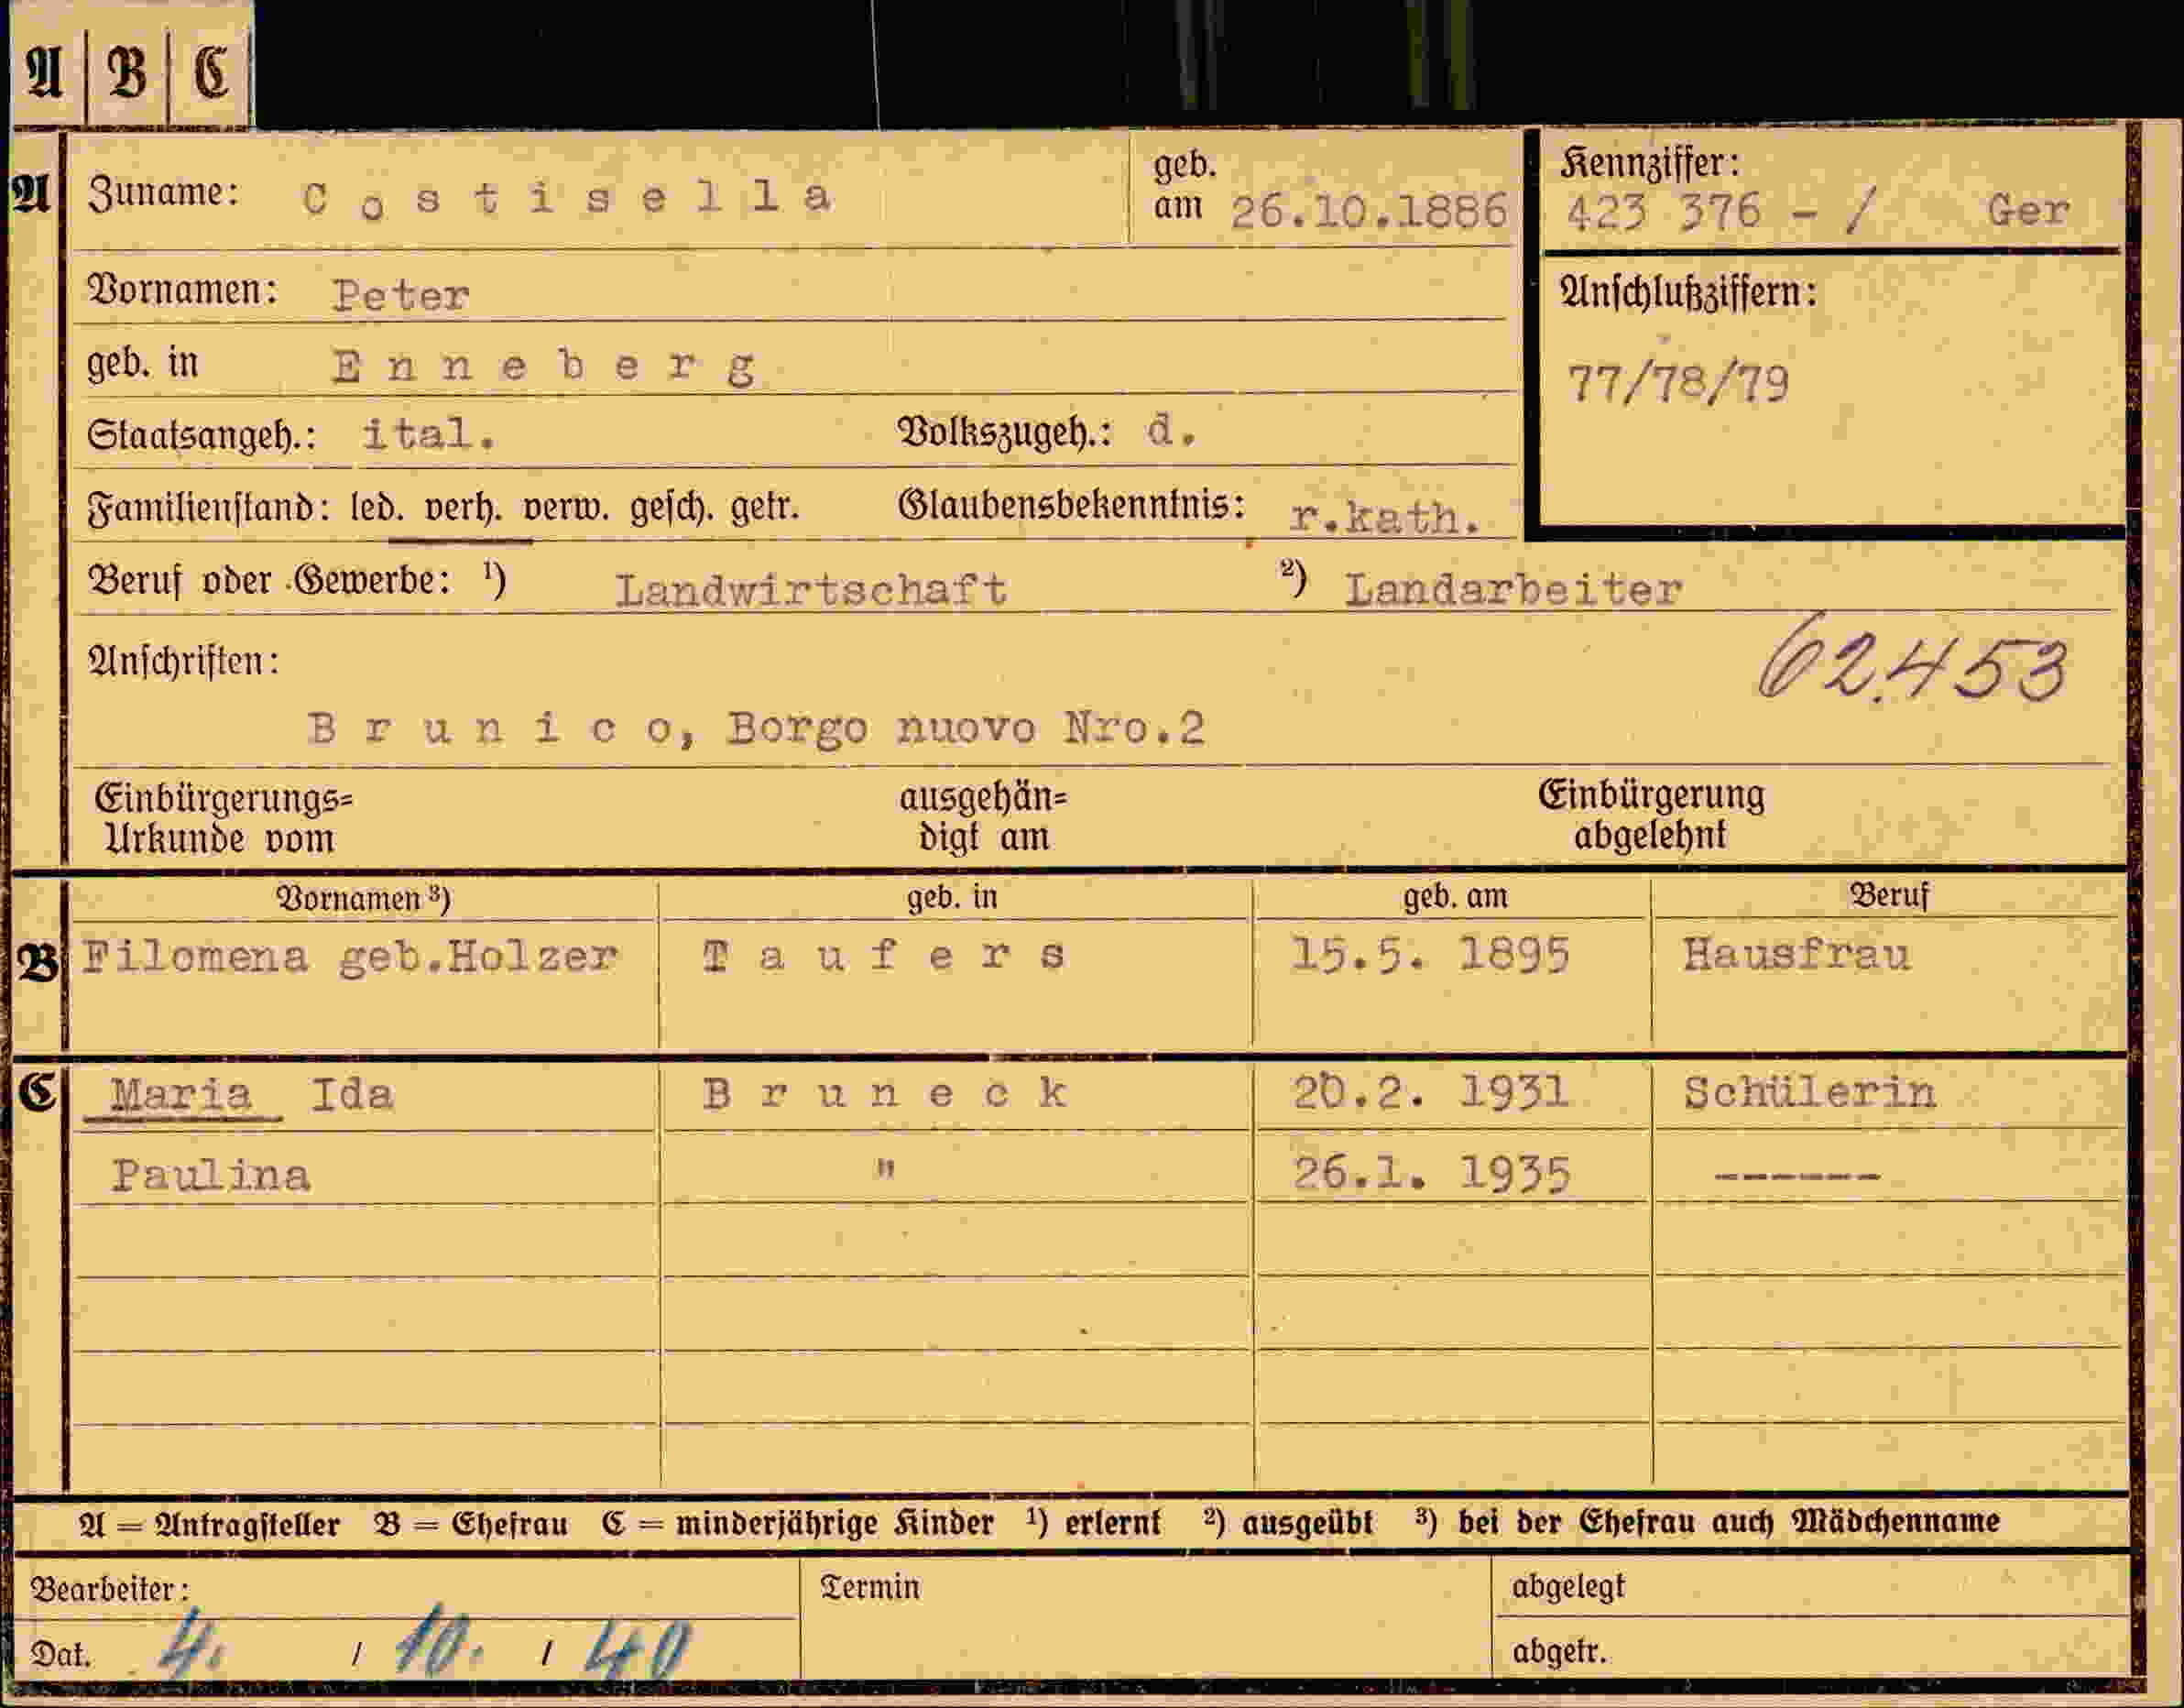 A | B | C
A Zuname: Costisella geb. am 26.10.1886
Kennziffer:
423 376 - / Ger
Vornamen: Peter
Anschlußziffern:
77/78/79
geb. in Enneberg
Staatsangeh.: ital. Volkszugeh.: d.
Familienstand: led. verh. verw. gesch. getr. Glaubensbekenntnis: r.kath.
Beruf oder Gewerbe: ¹) Landwirtschaft ²) Landarbeiter
Anschriften: 62.453
Brunico, Borgo nuovo Nro.2
Einbürgerungs= ausgehän= Einbürgerung
Urkunde vom digt am abgelehnt
Vornamen ³) geb. in geb. am Beruf
B Filomena geb.Holzer Taufers 15.5. 1895 Hausfrau
C Maria Ida Bruneck 20.2. 1931 Schülerin
Paulina " 26.1. 1935 ------
A = Antragsteller B = Ehefrau C = minderjährige Kinder ¹) erlernt ²) ausgeübt ³) bei der Ehefrau auch Mädchenname
Bearbeiter: Termin abgelegt
Dat. 4. / 10. / 40 abgetr.